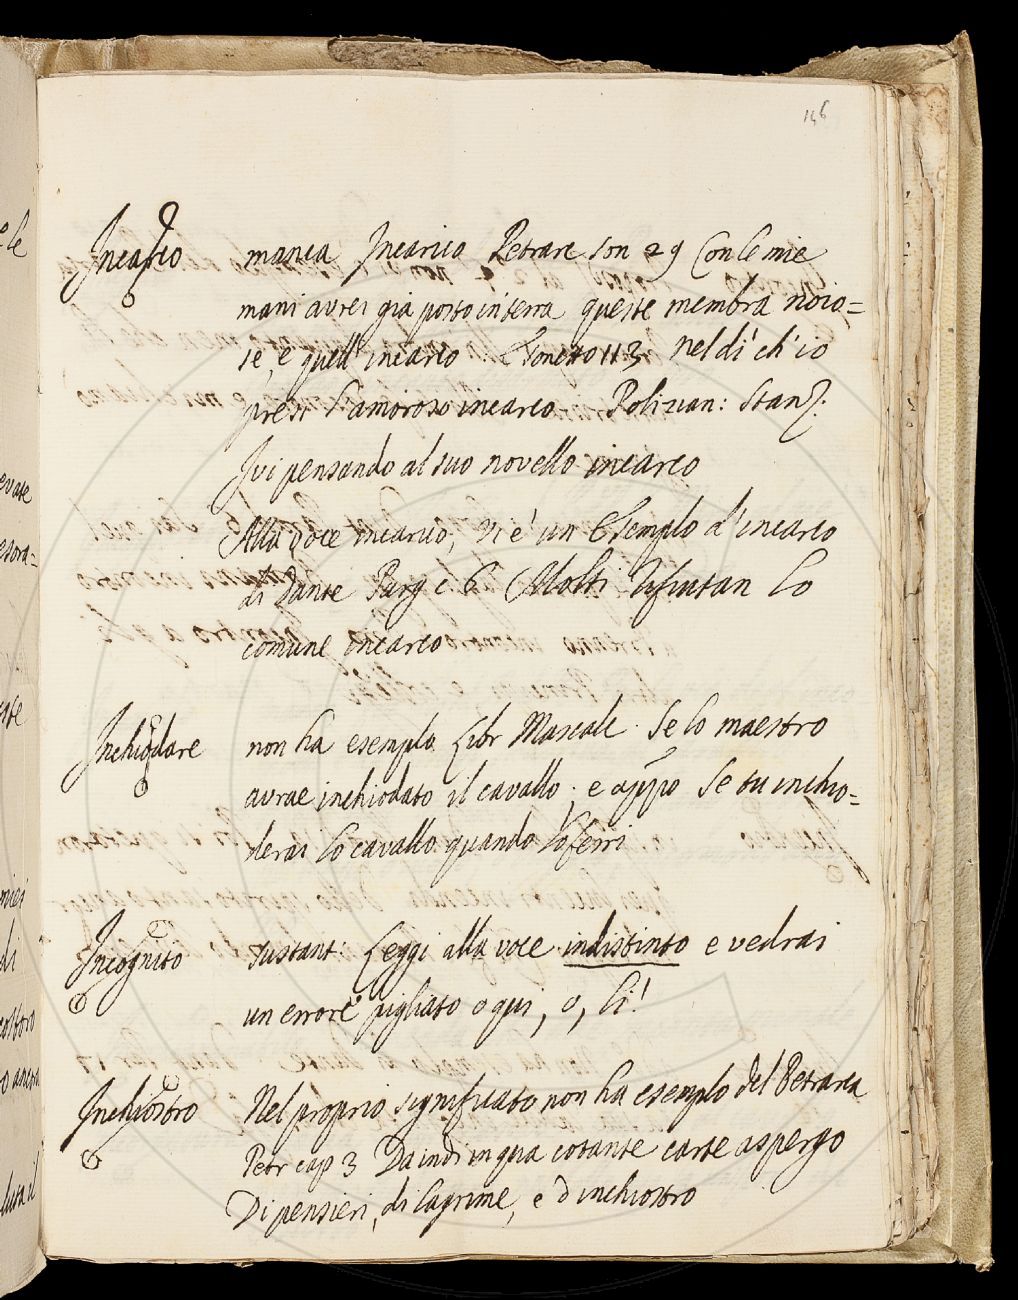 146
Incarco manca Incarico Petrarc son 29 Con le mie
mani avrei già posto in terra queste membra noio=
se, e quell' incarco. E sonetto 113 Nel dì ch'io
presi l'amoroso incarco Polizian: Stanz:
Ivi pensando al suo novello incarco
Alla voce incarico, vi è un Esempio d'incarco
di Dante Purg c 6 Molti rifiutan lo
comune incarco
Inchiodare non ha esempio. Libr Mascalc. Se lo maestro
avrae inchiodato il cavallo; e appo Se tu inchio=
derai lo cavallo quando lo ferri
Incognito sustant: Leggi alla voce indistinto e vedrai
un errore pigliato o qui, o, lì!
Inchiostro Nel proprio significato non ha esempio del Petrarca
Petr cap 3 Da indi in qua cotante carte aspergo
Di pensieri, di lagrime, e d inchiostro